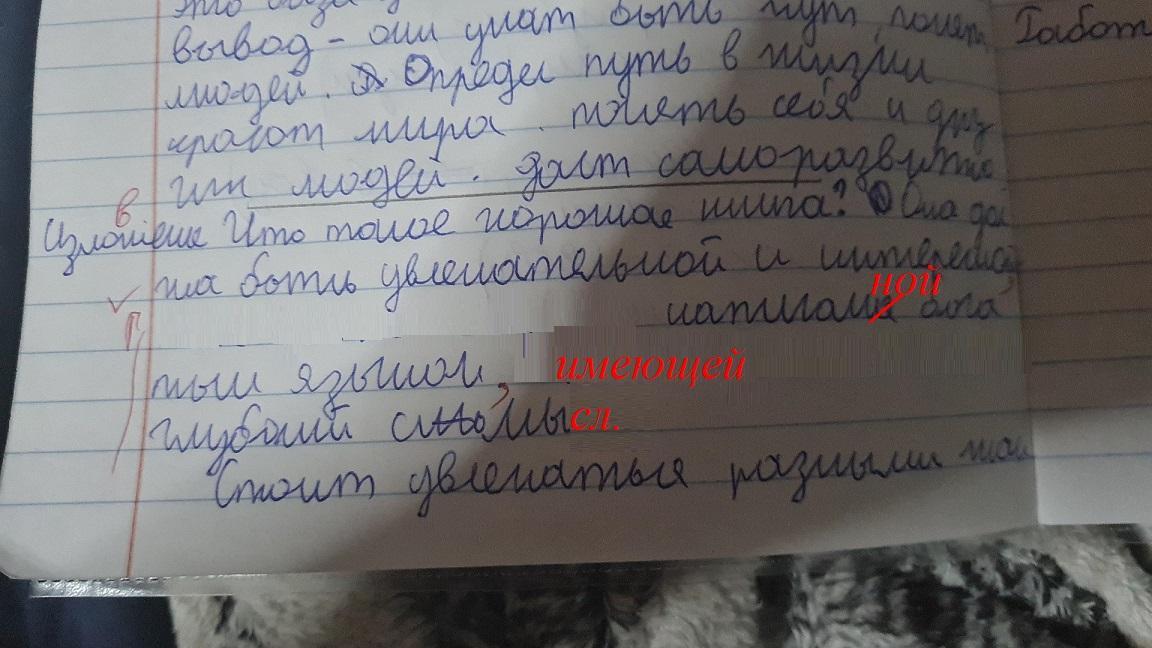 это
вывод - они учат быть пут понять Габот
людей. Опредеел путь в жизни
красот мира. понять себя и друг
гих людей. даст саморазвитие
в.
Изложение Что такое хорошая книга? Она дол
жна быть увлекательной и интересной
ной
написана опа
тым языком, имеющей
глубокий смысл.
Стоит увлекаться разными